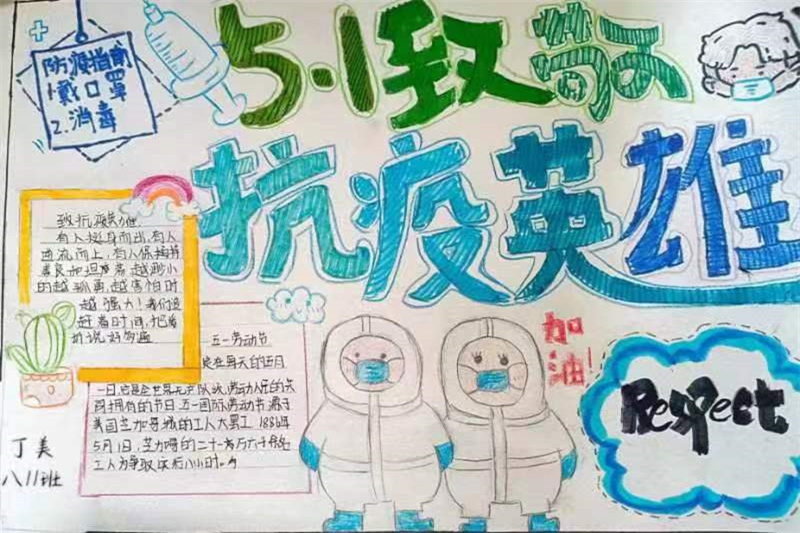 防疫指南
1.戴口罩
2.消毒
5·1致敬
抗疫英雄
致抗疫英雄
有人挺身而出,有人
逆流而上,有人保持着
善良和坦 越渺小
的越 勇,越害怕时
越强大!我们没
赶着时间,把着
说好多遍
五一劳动节
定在每天的五月
一日,它是全世界无产 级,劳动人民的共
同拥有的节日.五一国际劳动节源于
美国芝加哥城的工人大罢工.1886年
5月1日,芝加哥的二十一万六千余名
工人为争取实行八小时。
加油!
Respect
丁美
八11班